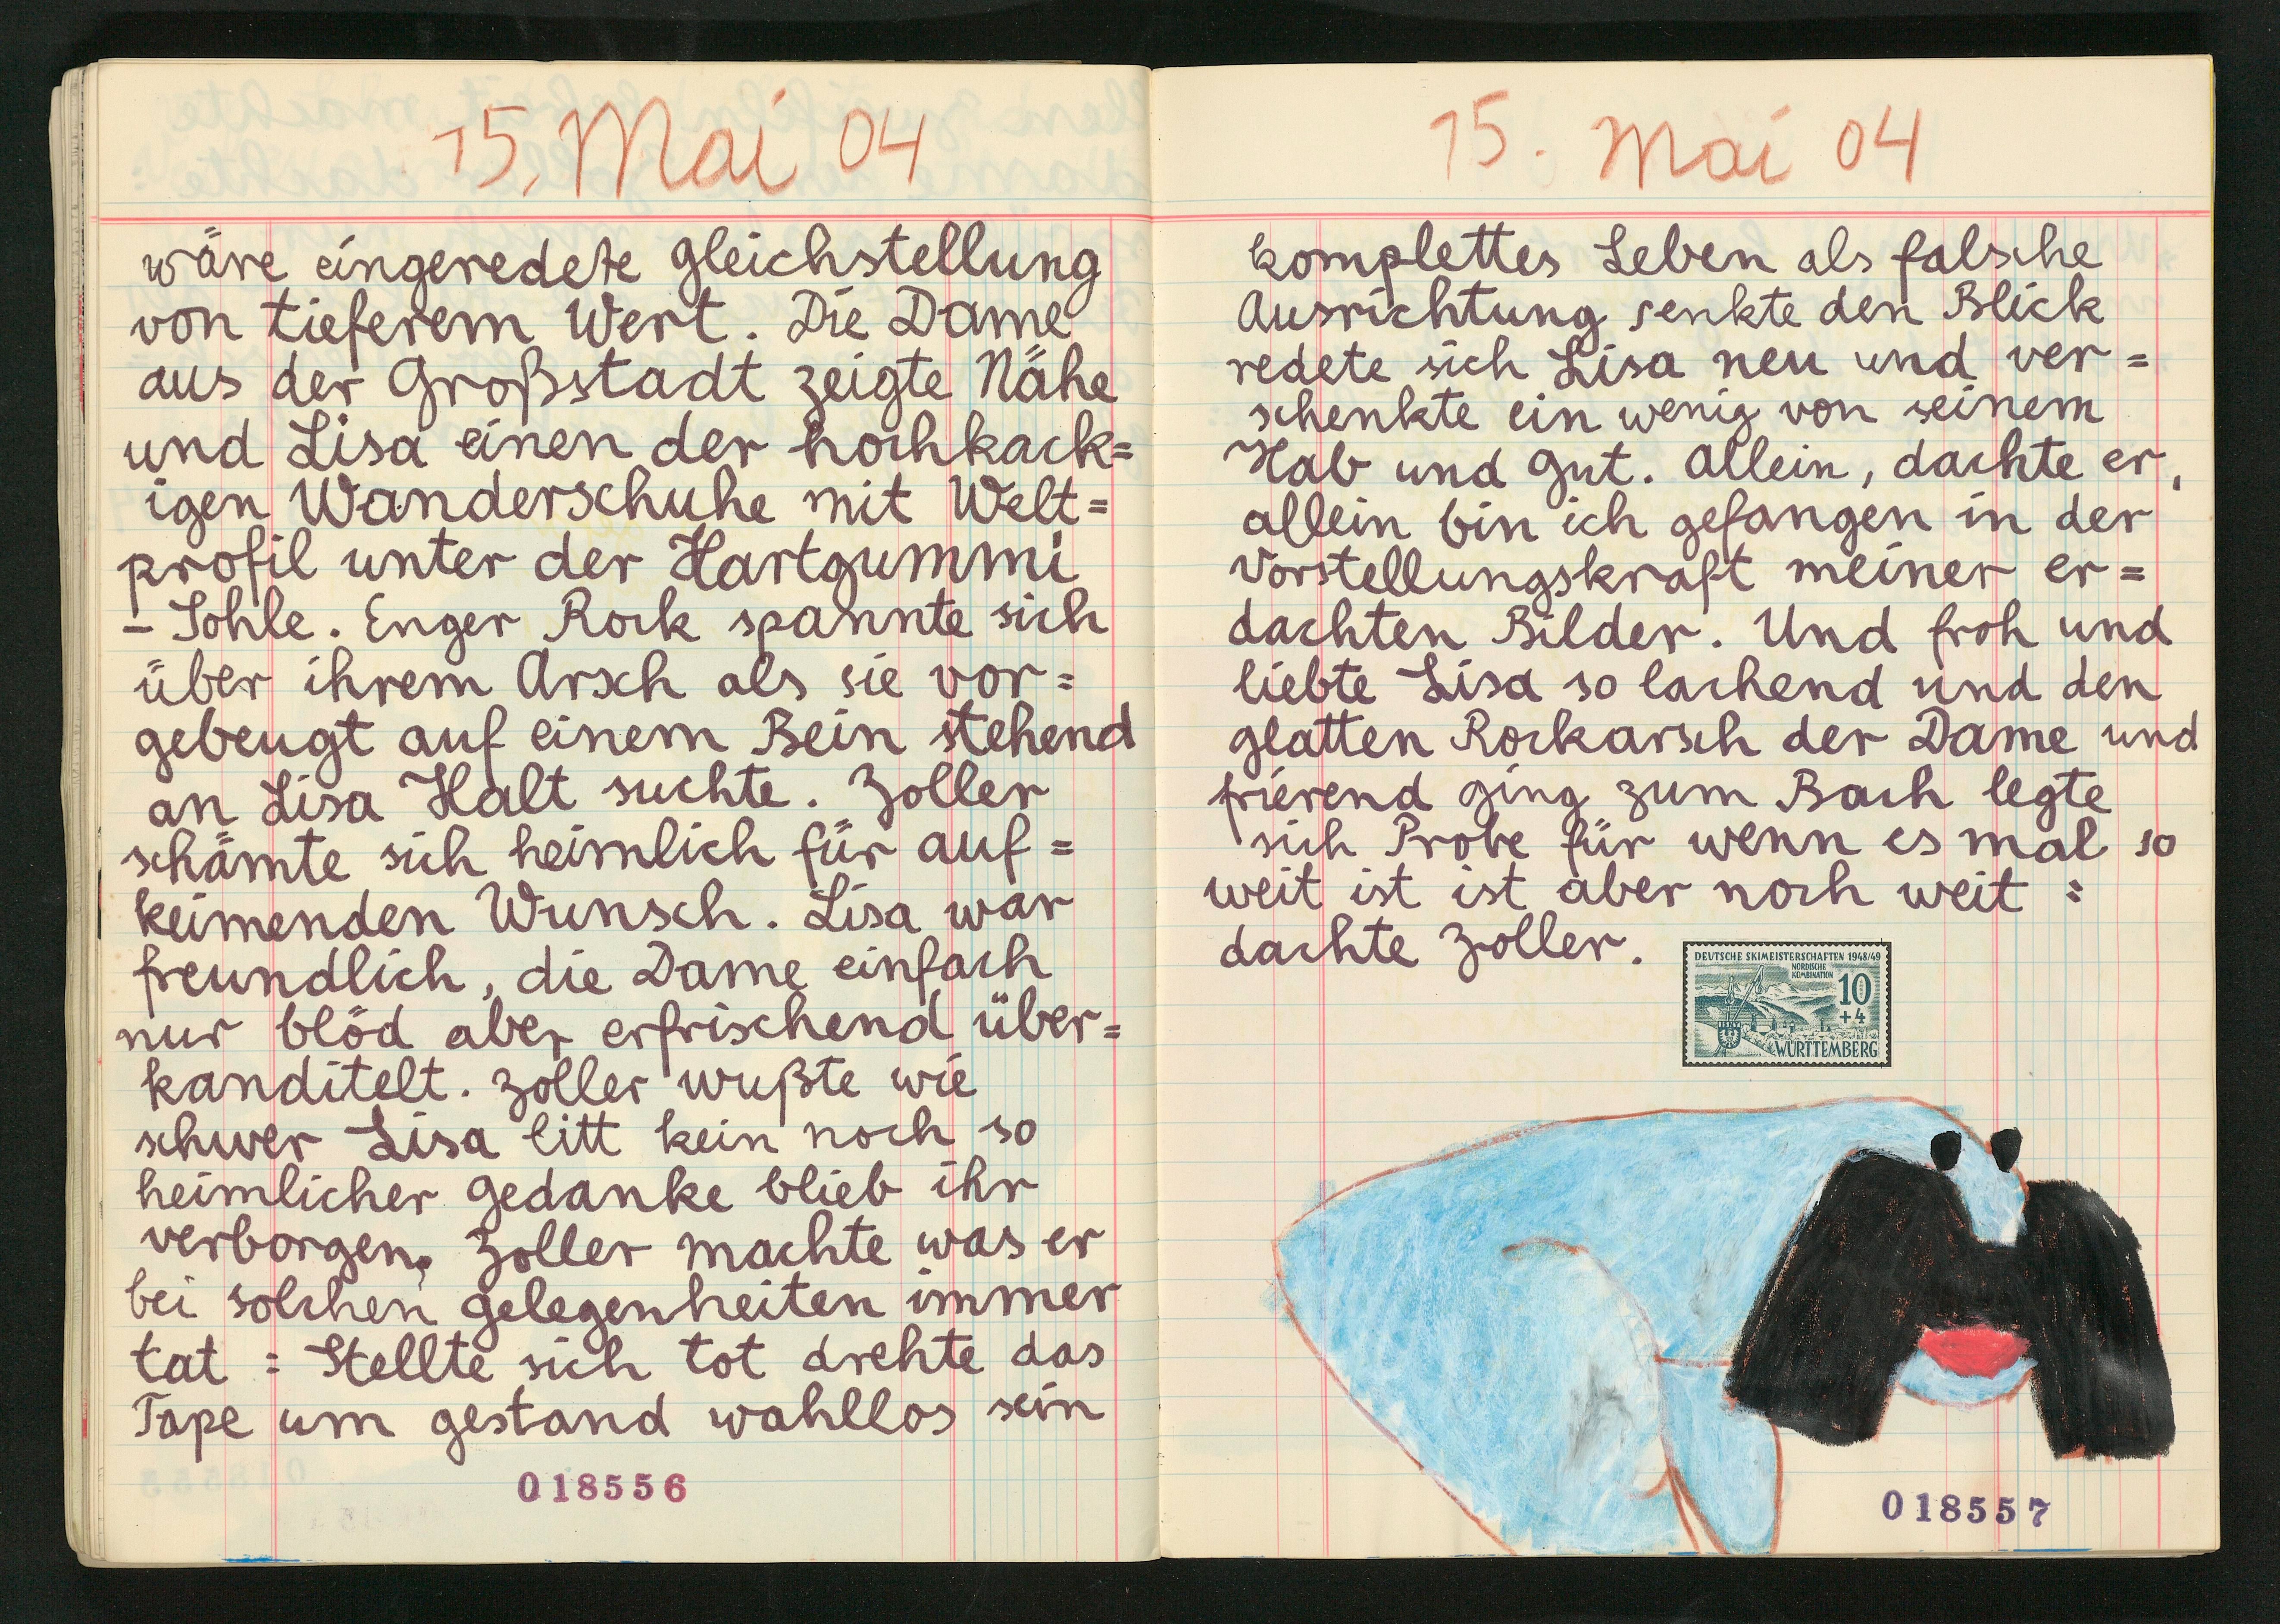 15. Mai 04
wäre eingeredete Gleichstellung
von tieferem Wert. Die Dame
aus der Großstadt zeigte Nähe
und Lisa einen der hochkack=
igen Wanderschuhe mit Welt=
profil unter der Hartgummi
- Sohle. Enger Rock spannte sich
über ihrem Arsch als sie vor=
gebeugt auf einem Bein stehend
an Lisa Halt suchte. Zoller
schämte sich heimlich für auf=
keimenden Wunsch. Lisa war
freundlich, die Dame einfach
nur blöd aber erfrischend über=
kanditelt. Zoller wußte wie
schwer Lisa litt kein noch so
heimlicher Gedanke blieb ihr
verborgen. Zoller machte was er
bei solchen Gelegenheiten immer
tat : Stellte sich tot drehte das
Tape um gestand wahllos sein
018556
15. Mai 04
komplettes Leben als falsche
Ausrichtung senkte den Blick
redete sich Lisa neu und ver=
schenkte ein wenig von seinem
Hab und Gut. Allein, dachte er,
allein bin ich gefangen in der
Vorstellungskraft meiner er=
dachten Bilder. Und froh und
liebte Lisa so lachend und den
glatten Rockarsch der Dame und
frierend ging zum Bach legte
sich Probe für wenn es mal so
weit ist ist aber noch weit :
dachte Zoller.
DEUTSCHE SKIMEISTERSCHAFTEN 1948/49
NORDISCHE
KOMBINATION
10
+4
WÜRTTEMBERG
018557